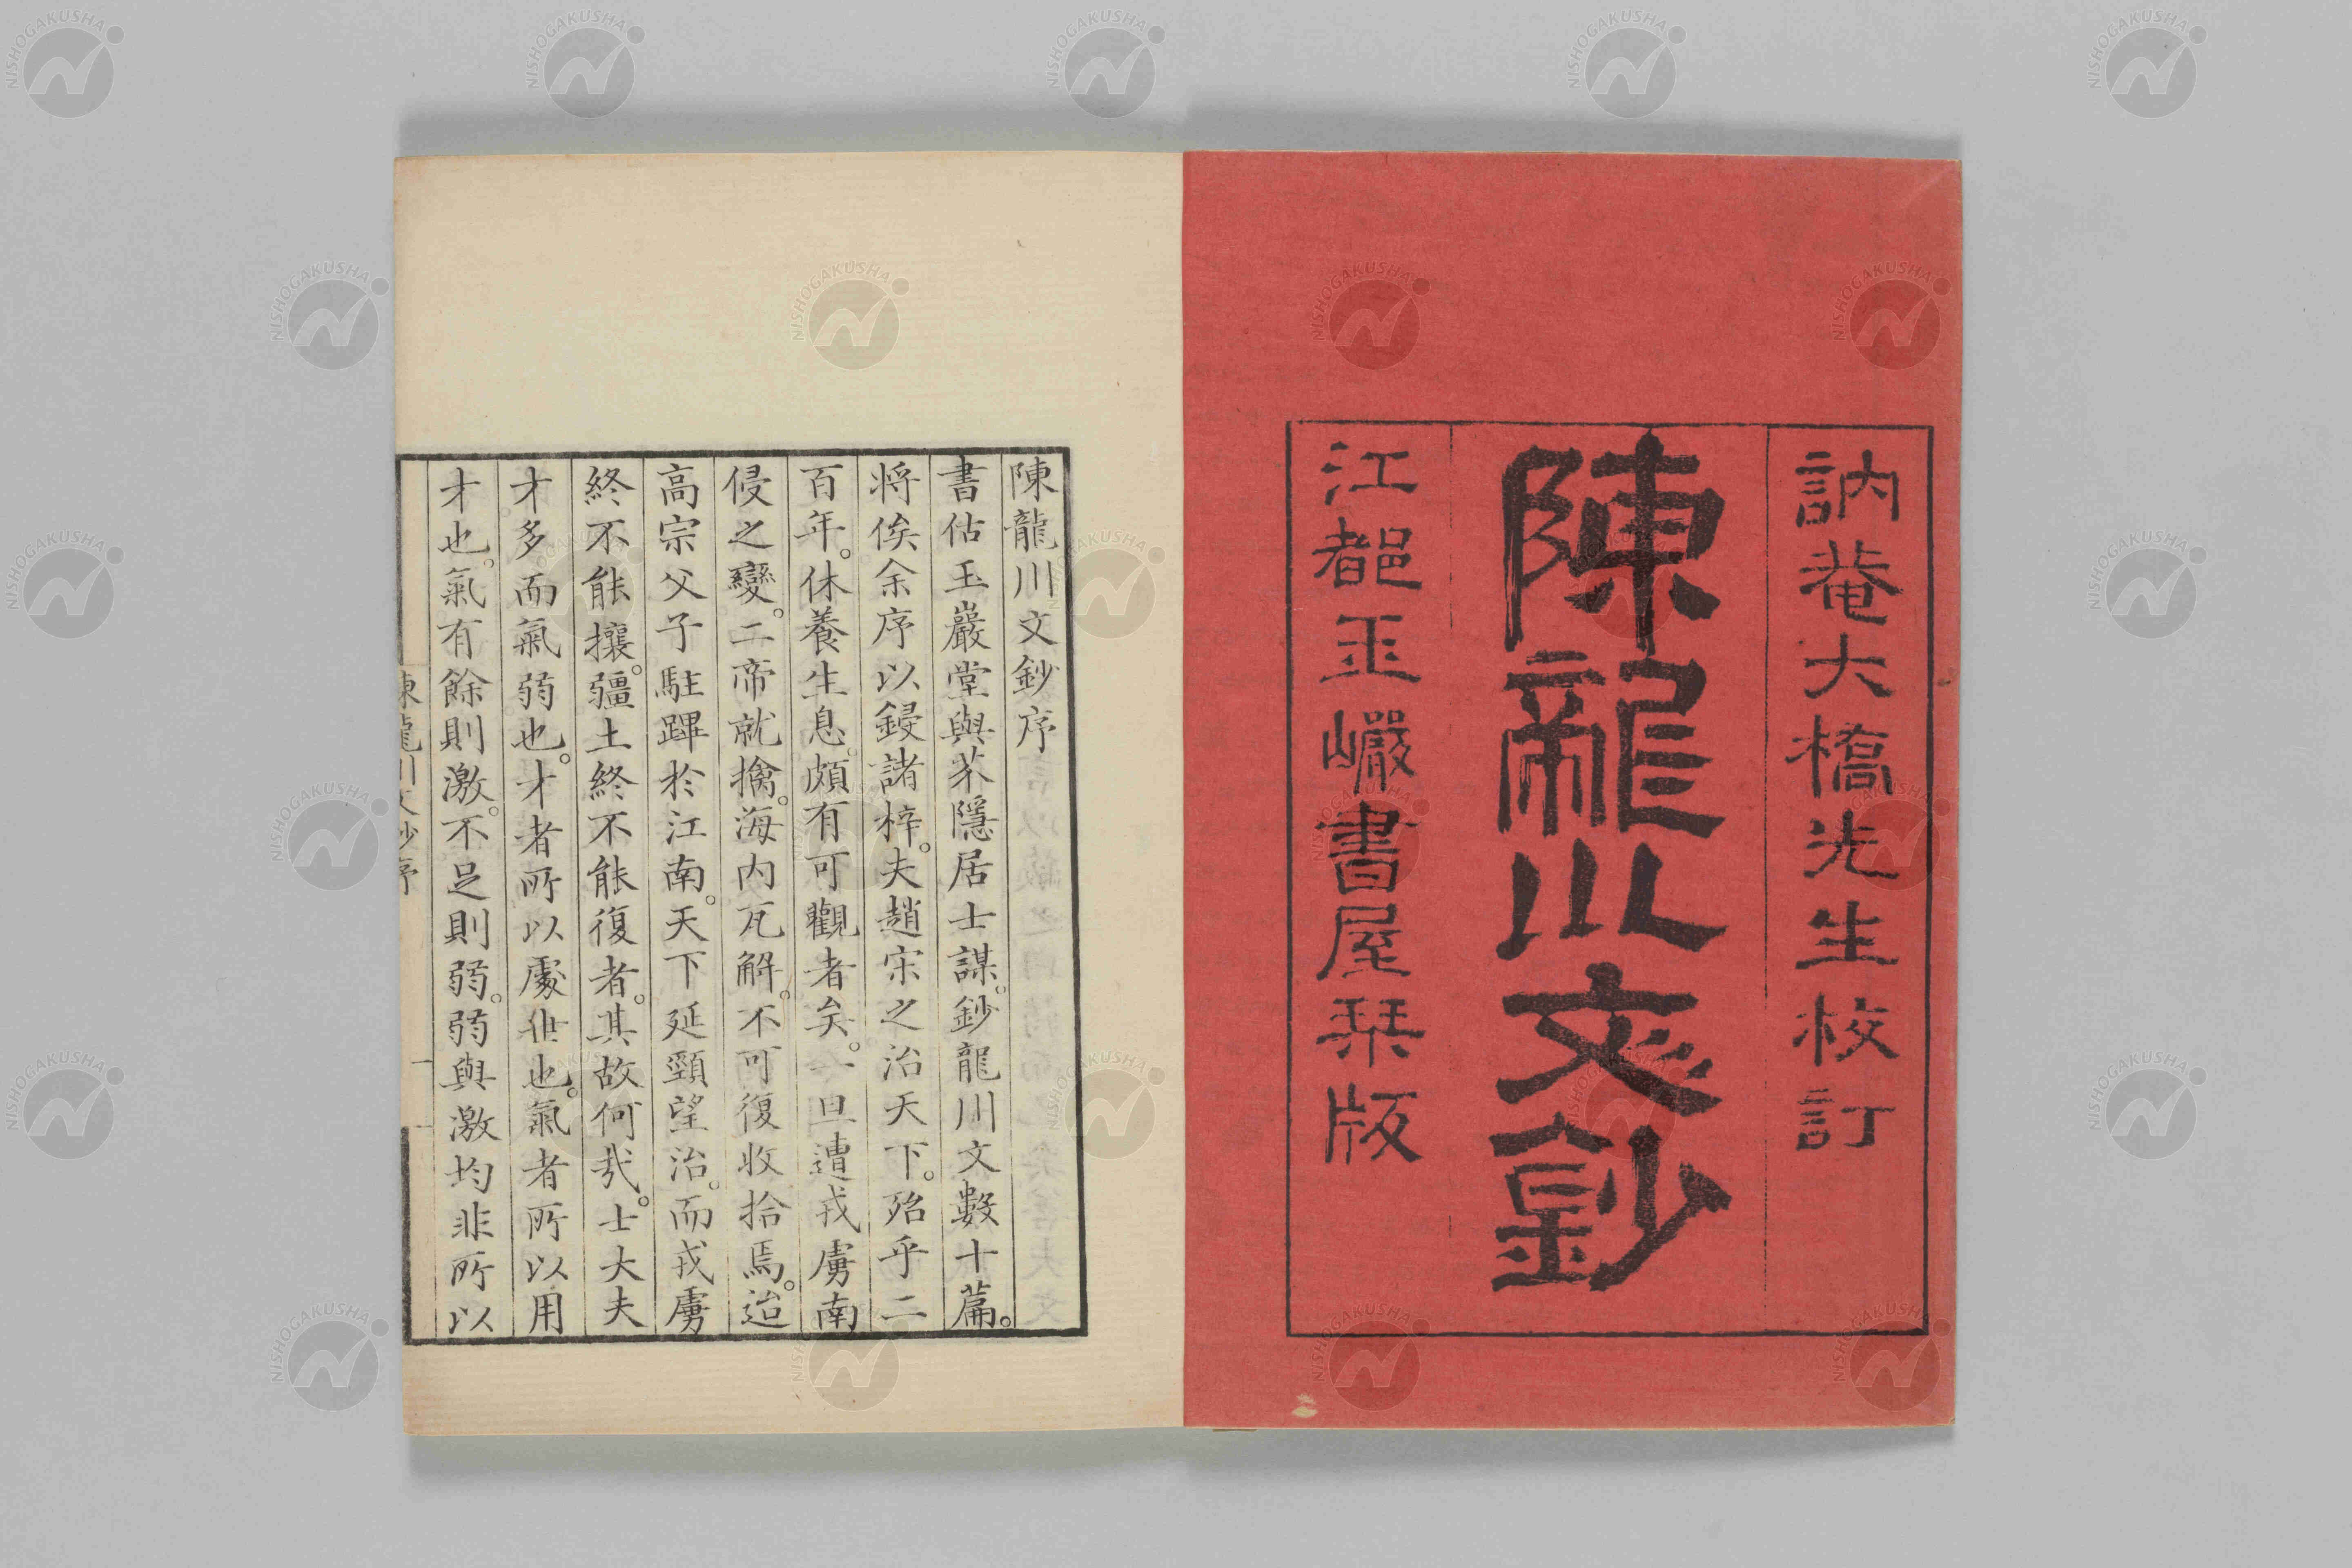 訥菴大橋先生校訂
陳龍川文鈔
江都玉巖書屋栞版
陳龍川文鈔序
書估玉巖堂與芥隱居士謀。鈔龍川文數十篇。
將俟余序以鋟諸梓。夫趙宋之治天下。殆乎二
百年。休養生息。頗有可觀者矣。一旦遭戎虜南
侵之變。二帝就擒。海内瓦解。不可復收拾焉。迨
高宗父子駐蹕於江南。天下延頸望治。而戎虜
終不能攘。疆土終不能復者。其故何㢤。士大夫
才多而氣弱也。才者所以處世也。氣者所以用
才也。氣有餘則激。不足則弱。弱與激均非所以
陳龍川文鈔序
一
NISHOGAKUSHA